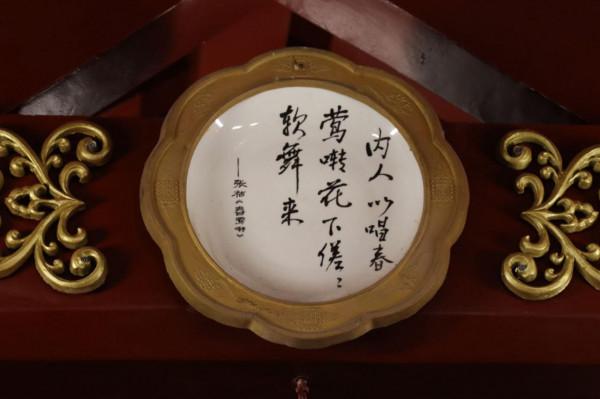 内人以唱春
莺啭花下傞〻
软舞来
——张祜《春莺啭》